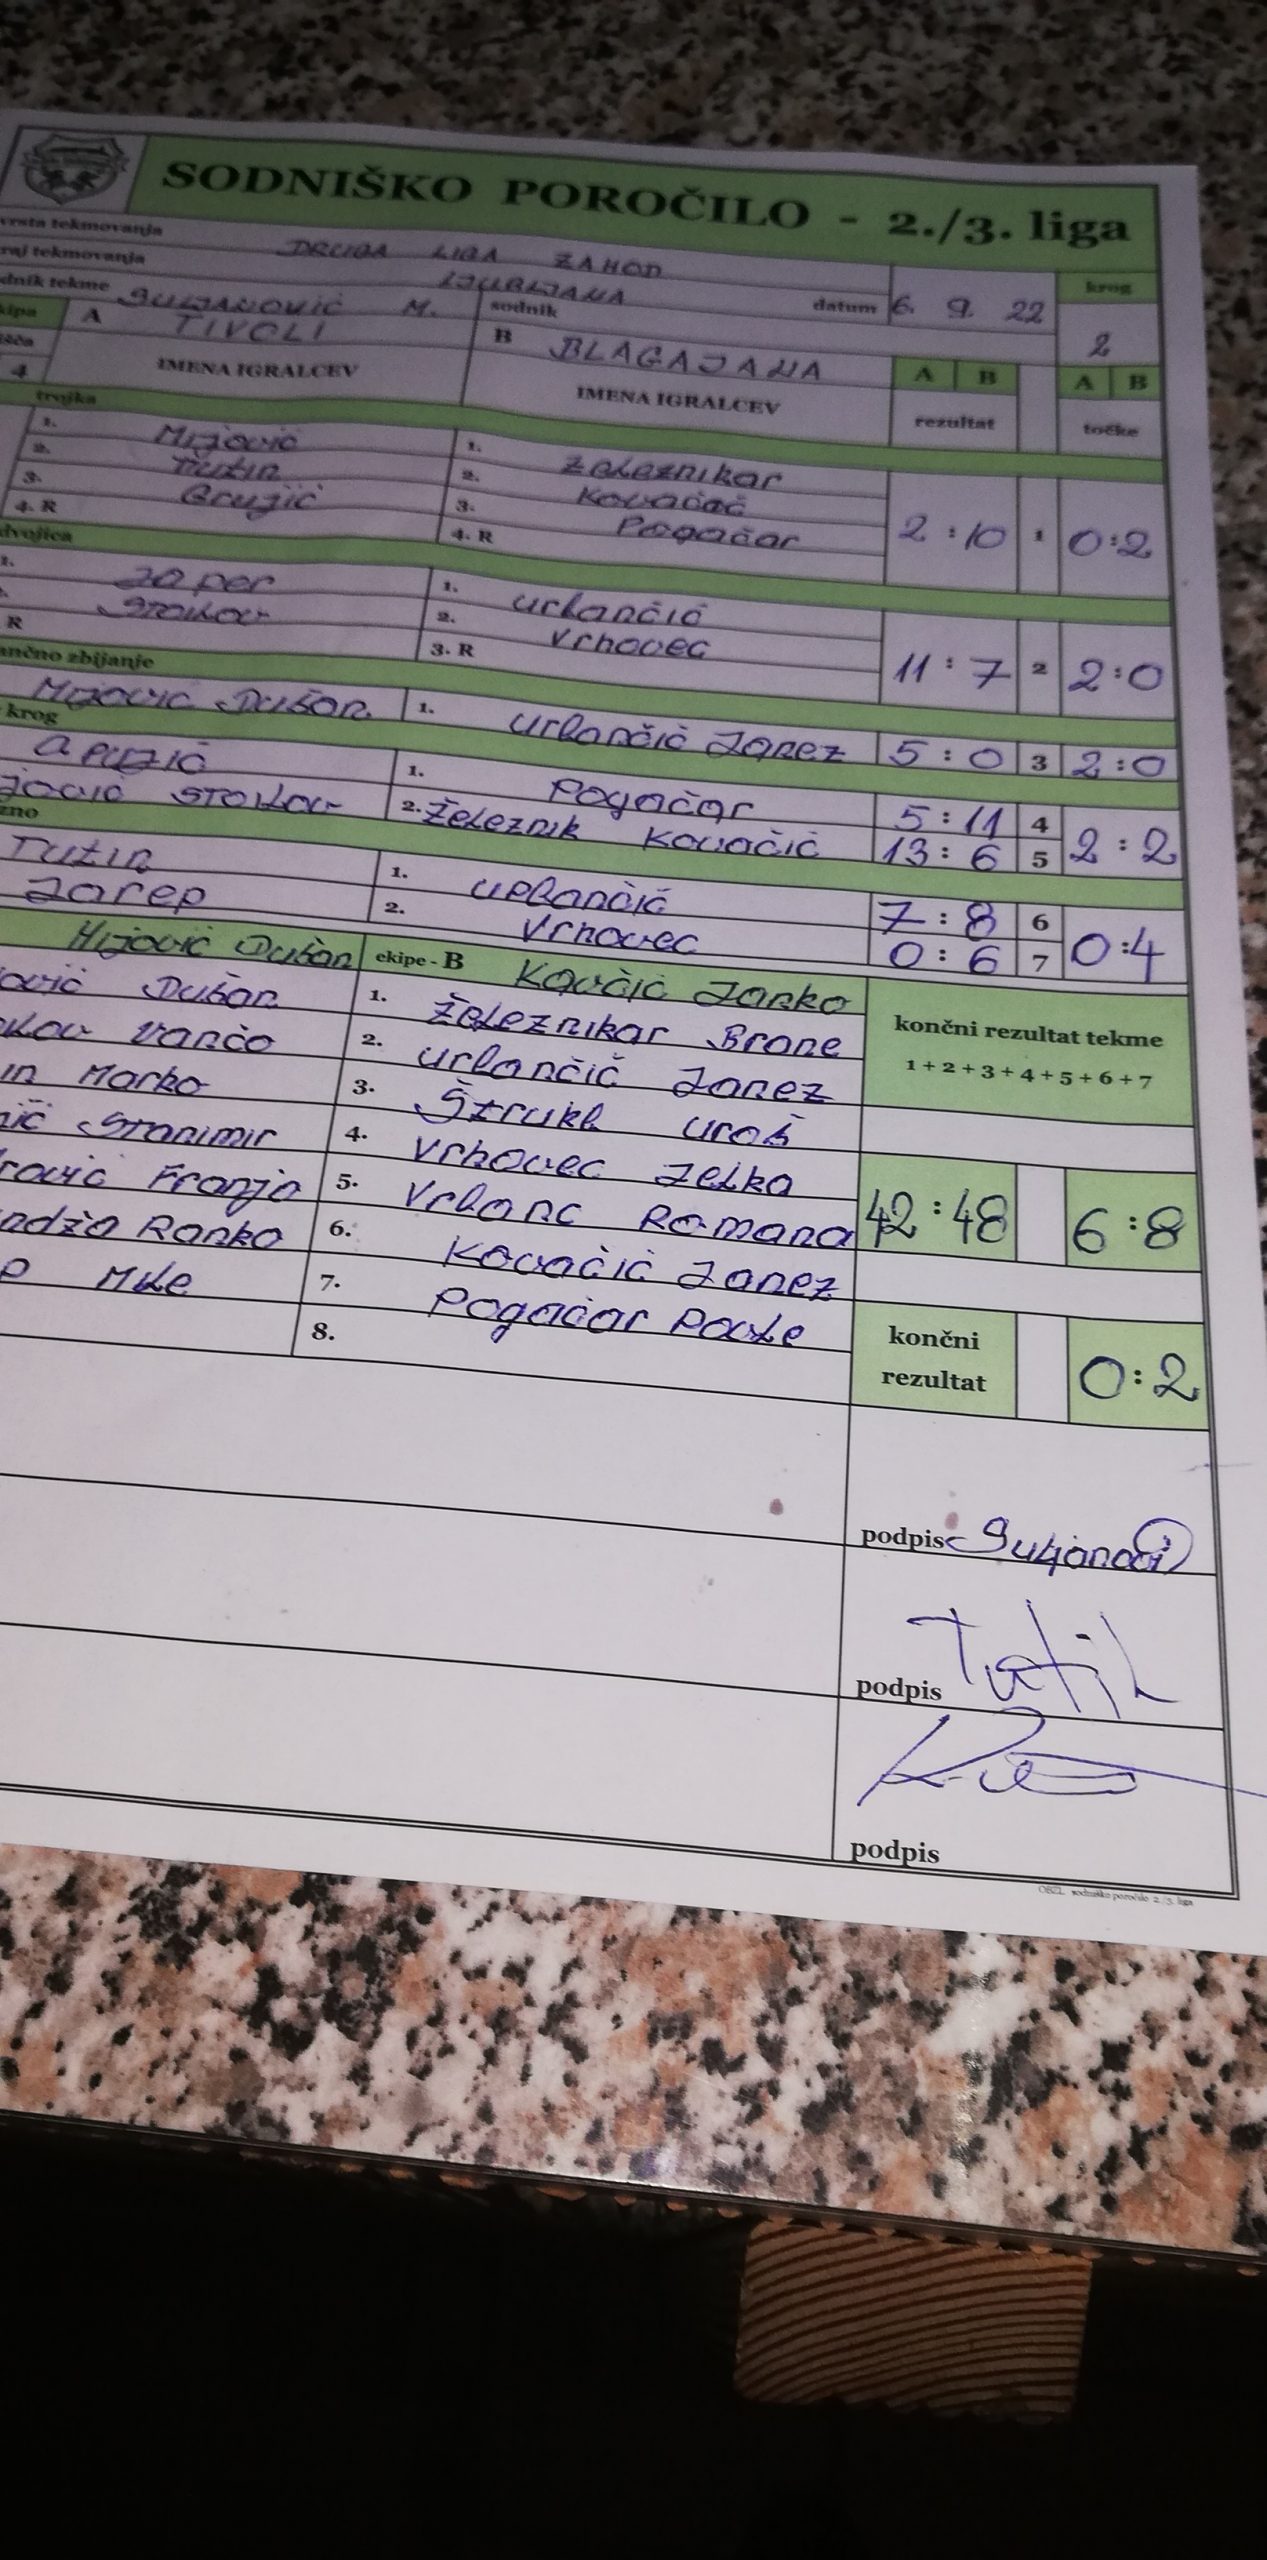 SODNIŠKO POROČILO - 2./3. liga
vrsta tekmovanja DRUGA LIGA ZAHOD
raj tekmovanja LJUBLJANA datum 6. 9. 22 krog
dnik tekme SULJANOVIĆ M. sodnik 2
kipa A TIVOLI B BLAGAJANA A B A B
4 IMENA IGRALCEV IMENA IGRALCEV rezultat točke
trojka
1. Mijović 1. Železnikar
2. Tutin 2. Kovačač
3. GruJić 3. Pogačar 2 : 10 1 0:2
4. R 4. R
dvojica
1. Japer 1. Urbančič
Stoilov 2. Vrhovec
R 3. R 11 : 7 2 2:0
ančno zbijanje
Mijović Dušan 1. Urbančič Janez 5 : 0 3 2:0
krog
1. Pogačar 5 : 11 4
jović Stoilov 2. Železnik Kovačič 13 : 6 5 2 : 2
zno
Tutin 1. Urbančič 7 : 8 6
Jarep 2. Vrhovec 0 : 6 7 0:4
Mijović Dušan ekipe - B Kovčič Janko
ović Dušan 1. Železnikar Brane končni rezultat tekme
ilov Vančo 2. Urbančič Janez 1 + 2 + 3 + 4 + 5 + 6 + 7
in Marko 3. Štrukl Uroš
ić Stanimir 4. Vrhovec Jelka
rović Franjo 5. Vrbanc Romana 42 : 48 6 : 8
adžo Ranko 6. Kovačič Janez
p Mile 7. Pogačar Pavle
8. končni rezultat 0 : 2
podpis
podpis
podpis
OBZL sodniško poročilo 2./3. liga